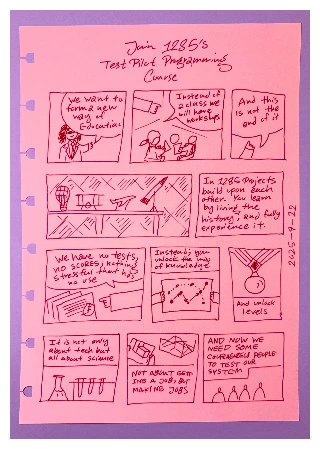 Join 1285's
Test Pilot Programming
Course
We want to
form a new
way of
Education
Instead of
a class we
will have
workshops
And this
is not the
end of it
In 1285 Projects
build upon each
other. You learn
by living the
history, and fully
experience it.
We have no tests,
no scores, nothing
stressful that has
no use
Instead, you
unlock the map
of knowledge
And unlock
levels
2025-9-22
It is not only
about tech but
all about science
NOT ABOUT GETT-
ING A JOB, BUT
MAKING JOBS
AND NOW WE
NEED SOME
COURAGEOUS PEOPLE
TO TEST OUR
SYSTEM